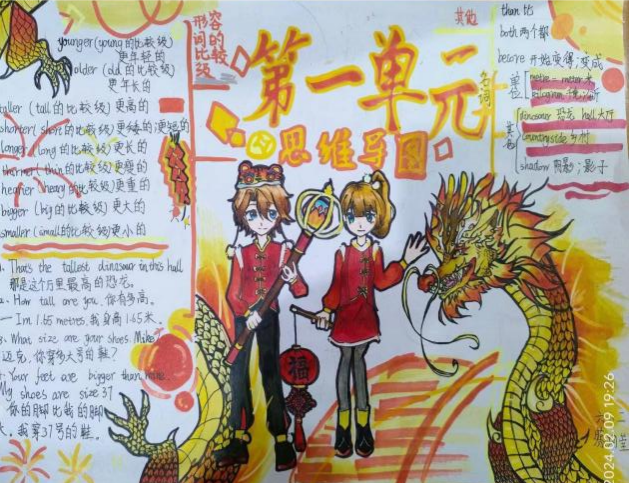 younger(young的比较级)
更年轻的
older (old的比较级)
更年长的
taller (tall的比较级)更高的
shorter(short的比较级)更矮的;更短的
longer(long的比较级)更长的
thinner(thin的比较级)更瘦的
heavier(heavy的比较级)更重的
bigger(big的比较级)更大的
smaller(small的比较级)更小的
1. That's the tallest dinosaur in this hall
那是这个厅里最高的恐龙。
2. How tall are you. 你有多高。
— I'm 1.65 metres, 我身高1.65米.
3. What size are your shoes Mike
迈克,你穿多大号的鞋?
Your feet are bigger than mine.
My shoes are size 37
你的脚比我的脚
大,我穿37号的鞋。
形容词的比较级
第一单元
思维导图
福
其他
than 比
both 两个都
become 开始变得;变成
名词
单位
metre = meter 米
dinosaur 恐龙 hall 大厅
countryside 乡村
shadow 阴影;影子
2024.02.09 19:26